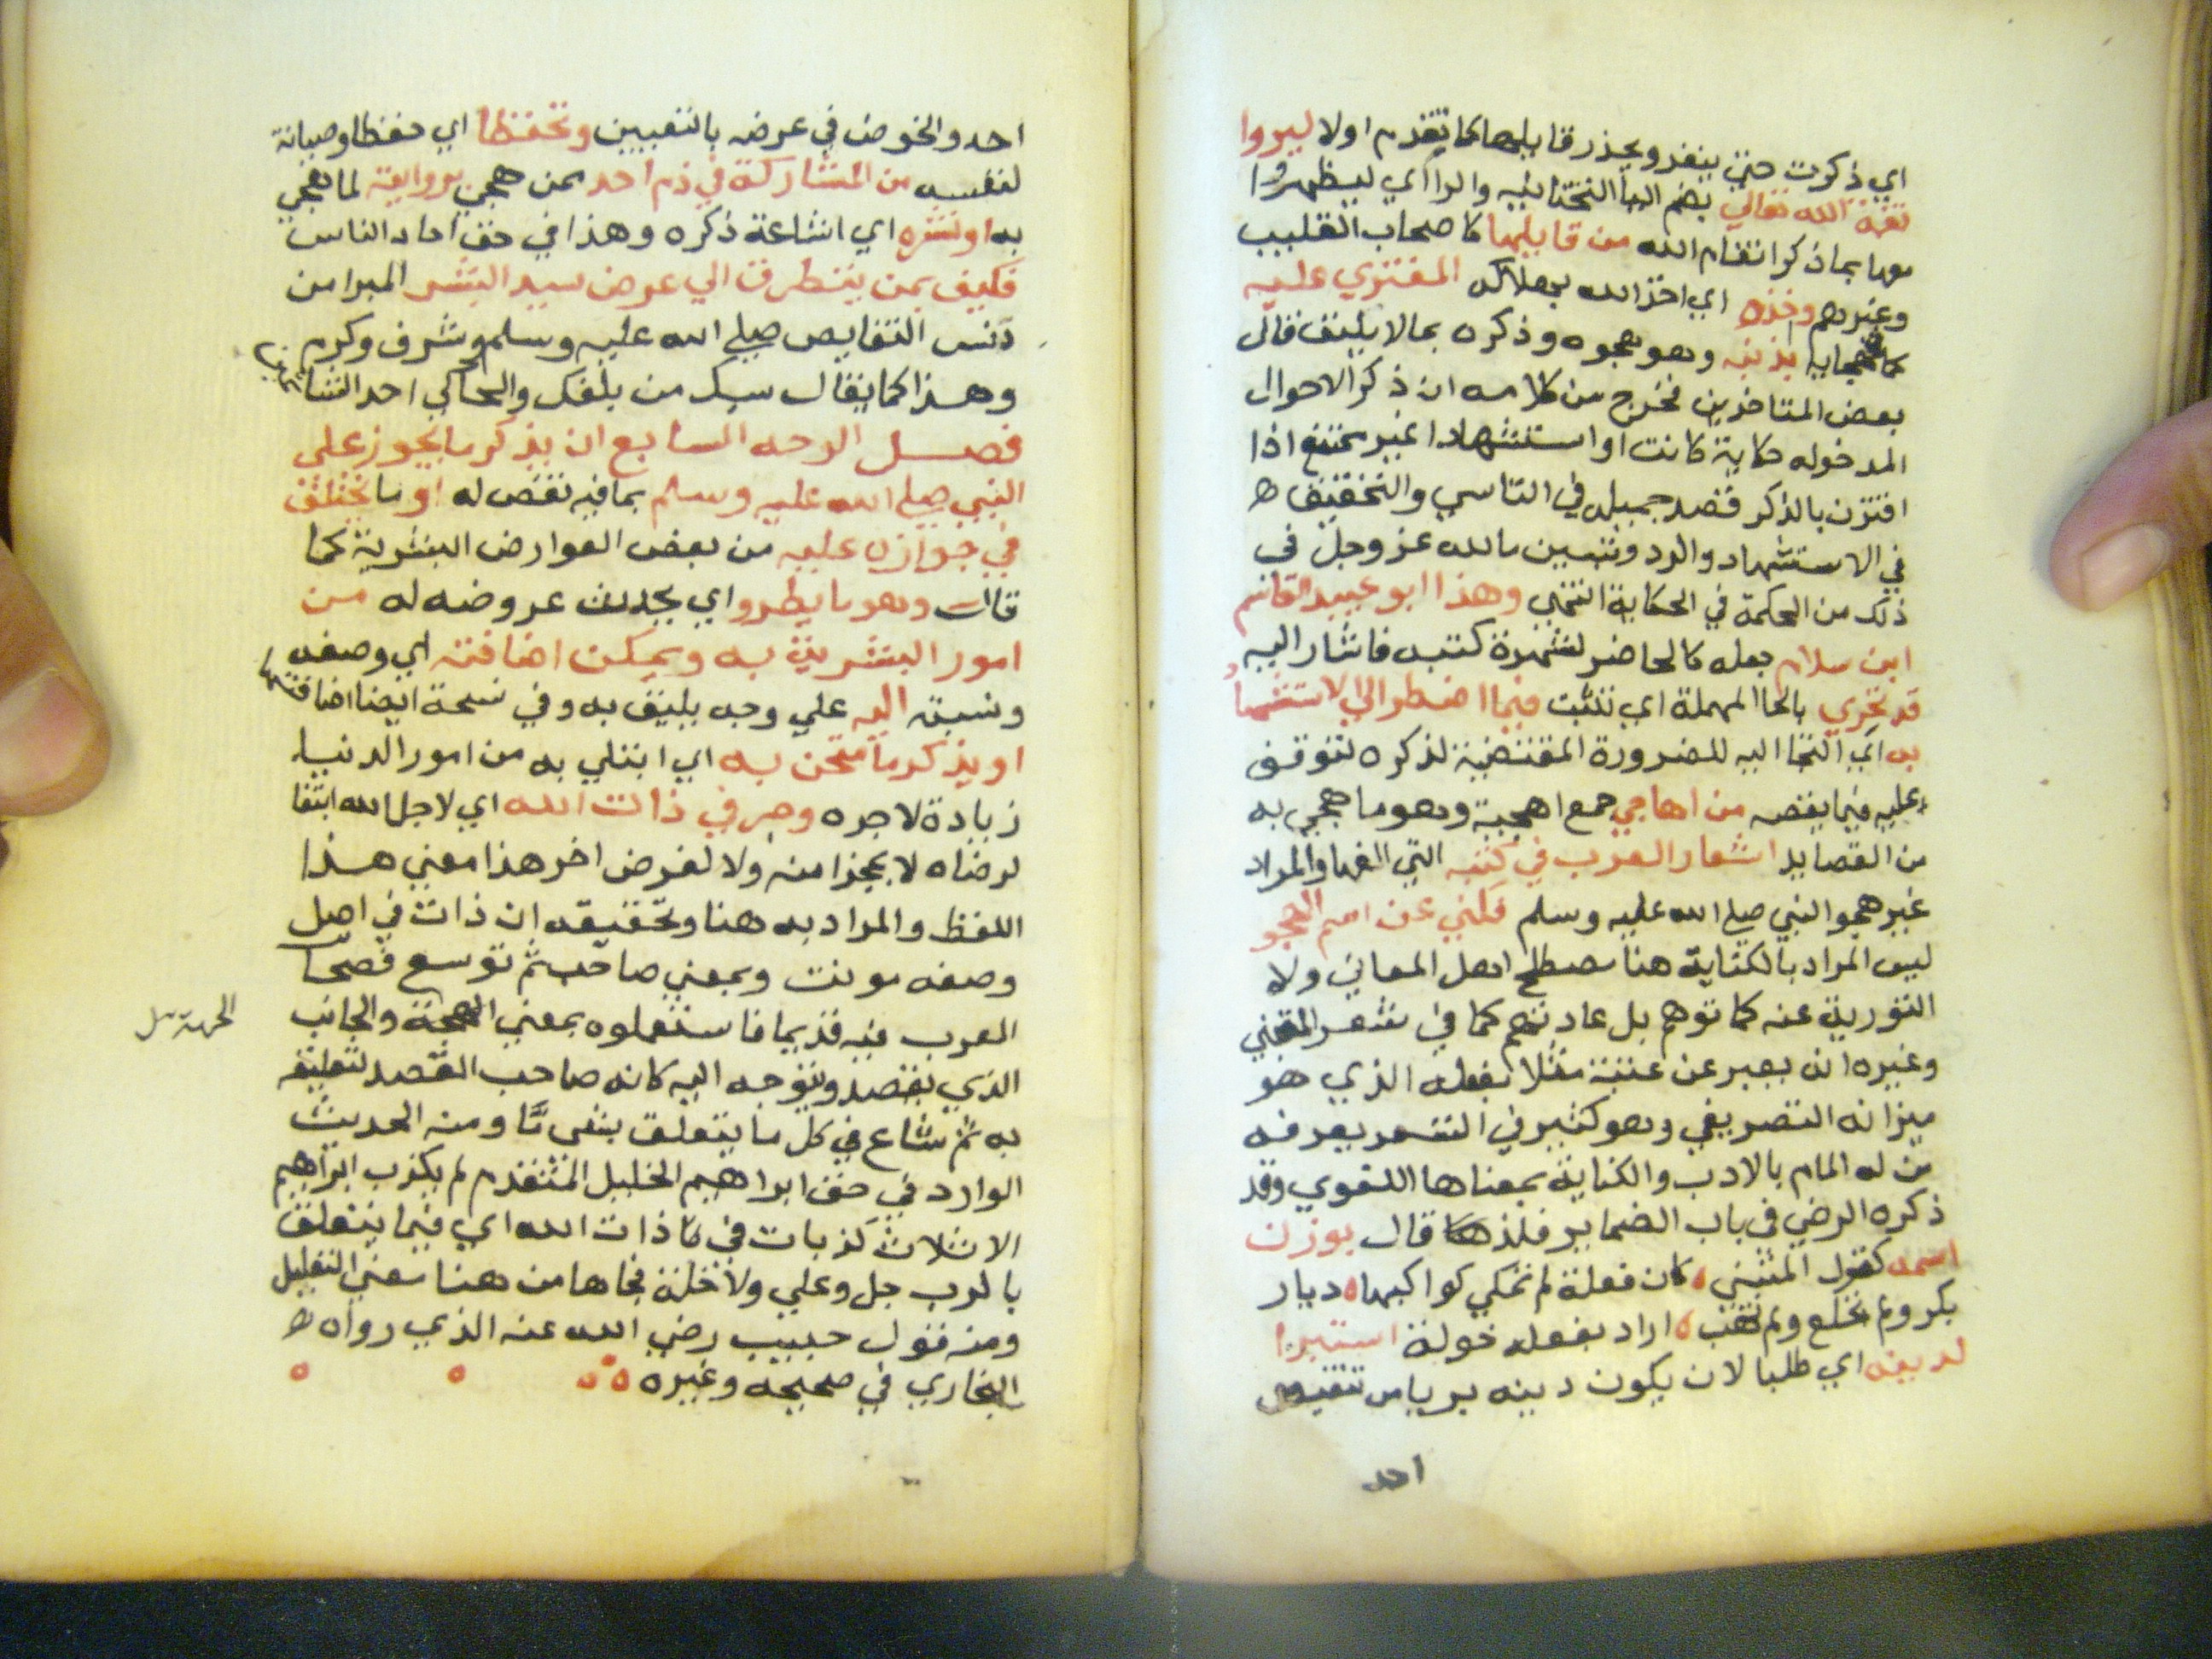 اي ذكرت حتي ينفر ويحذر قايلها كما تقدم اولا ليروا
نقمة الله تعالي بضم اليا التحتانية والرا اي ليظهروا
معها بما ذكر انتقام الله من قايلها كاصحاب القليب
وغيرهم واخذه اي اخذ الله بهلاك المفتري عليه
بذنبه وهو هجوه وذكره بما لا يليق قال
بعض المتاخرين فخرج من كلامه ان ذكر الاحوال
المدخوله حكاية كانت او استشهادا غير ممتنع اذا
اقترن بالذكر قصد جميل في التاسي والتحقيق
في الاستشهاد والرد وتبيين ما لله عز وجل في
ذلك من الحكمة في الحكاية انتهي وهذا ابو عبيد القاسم
ابن سلام جعله كالحاضر لشهرة كتبه فاشار اليه
قد تحري بالحا المهملة اي تثبت فيما اضطر الي الاستشهاد
به اي التجا اليه للضرورة المقتضية لذكره لتوقف
عليه فيما يقصه من اهاجي جمع اهجية وهو ما هجي به
من القصايد اشعار العرب في كتبه التي الفها والمراد
غير هجو النبي صلي الله عليه وسلم فكني عن اسم المهجو
ليس المراد بالكناية هنا مصطلح اهل المعاني ولا
التورية عنه كما توهم بل عادتهم كما في شعر المتنبي
وغيره ان يعبر عن عتبة مثلا بفعلة الذي هو
ميزانه التصريفي وهو كثير في الشعر يعرفه
من له المام بالادب والكناية بمعناها اللغوي وقد
ذكره الرضي في باب الضماير فلذا قال بوزن
اسمه كقول المتنبي ٥ كان فعلة لم تملي كواكبها ٥ ديار
بكر ولم تخلع ولم تهب ٥ اراد بفعلة خولة استبرا
لدينه اي طلبا لان يكون دينه بريا من تنقيص
احد
احد والخوض في عرضه بالتعييب وتحفظا اي حفظا وصيانة
لنفسه من المشاركة في ذم احد ممن هجي بروايته لما هجي
به او نشره اي اشاعة ذكره وهذا في حق احاد الناس
فكيف بمن يتطرق الي عرض سيد البشر المبرا من
دنس النقايص صلي الله عليه وسلم وشرف وكرم
وهذا كما يقال سبك من بلغك والحاكي احد الشاتمين
فصل الوجه السابع ان يذكر ما يجوز علي
النبي صلي الله عليه وسلم بما فيه نقص له او ما يختلف
في جوازه عليه من بعض العوارض البشرية كما
قال وهو ما يطرو اي يحدث عروضه له من
امور البشرية به ويمكن اضافته اي وصفه
ونسبته اليه علي وجه يليق به وفي نسخة ايضا اضافتها
او يذكر ما امتحن به اي ابتلي به من امور الدنيا
زيادة لاجره وصبر في ذات الله اي لاجل الله ابتغا
لرضاه لا عجزا منه ولا لغرض اخر هذا معني هذا
اللفظ والمراد به هنا وتحقيقه ان ذات في اصل
وصفه مونث وبمعني صاحب ثم توسع فصحا
العرب فيه قديما فاستعملوه بمعني الجهة والجانب
الجهة
الذي يقصد ويتوجه اليه كانه صاحب القصد لتعليقه
به ثم شاع في كل ما يتعلق بشي ما ومنه الحديث
الوارد في حق ابراهيم الخليل المتقدم لم يكذب ابراهيم
الا ثلاث كذبات في ذات الله اي فيما يتعلق
بالرب جل وعلي ولا خلة فجاها من هنا معني التعليل
ومنه قول حبيب رضي الله عنه الذي رواه
البخاري في صحيحه وغيره ٥ ٥ ٥ ٥